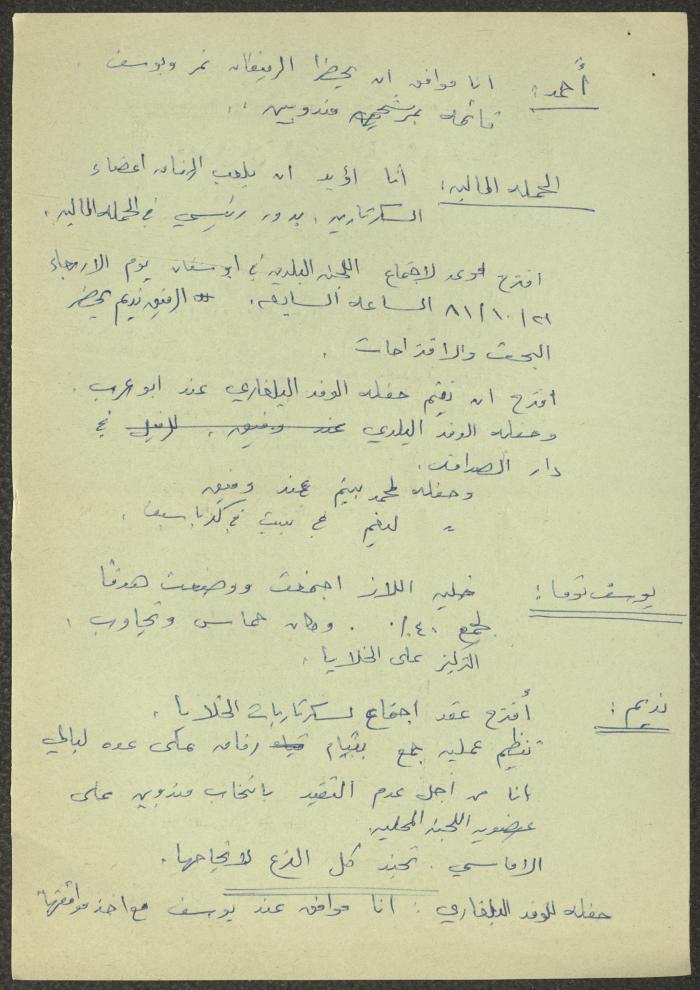 أحمد: انا موافق ان يحضرا الرفيقان نمر ويوسف
قائمه بمرشحي مندوبين ..
الحمله الماليه: أنا اؤيد ان يلعب الرفاق اعضاء
السكرتاريه، بدور رئيسي في الحمله الماليه.
اقترح موعد لاجتماع اللجنه البلديه في ابو سنان يوم الاربعاء
٨١/١٠/٢١ الساعه السابعه. الرفيق نديم يحضر
البحث والاقتراحات.
اقترح ان نقيم حفله الوفد البلغاري عند ابو عرب.
وحفله الوفد البلدي عند وفيق، في
دار الصداقه.
وحفله لمحمد بيتم عند وفيق
" لنعيم في بيت في كفرياسيف.
يوسف توما: خليه اللاز اجتمعت ووضعت هدفا
لجمع ٤٠٪. وكان حماس وتجاوب.
التركيز على الخلايا.
نديم: أقترح عقد اجتماع لسكرتاريات الخلايا.
تنظيم عمليه جمع بقيام رفاق على عده ليالي
انا من أجل عدم التقيد بانتخاب مندوبين على
عضويه اللجنه المحليه
الاساسي. تجند كل الفرع لانجاحها.
حفله للوفد البلغاري: انا موافق عند يوسف مع اخذ موافقتها